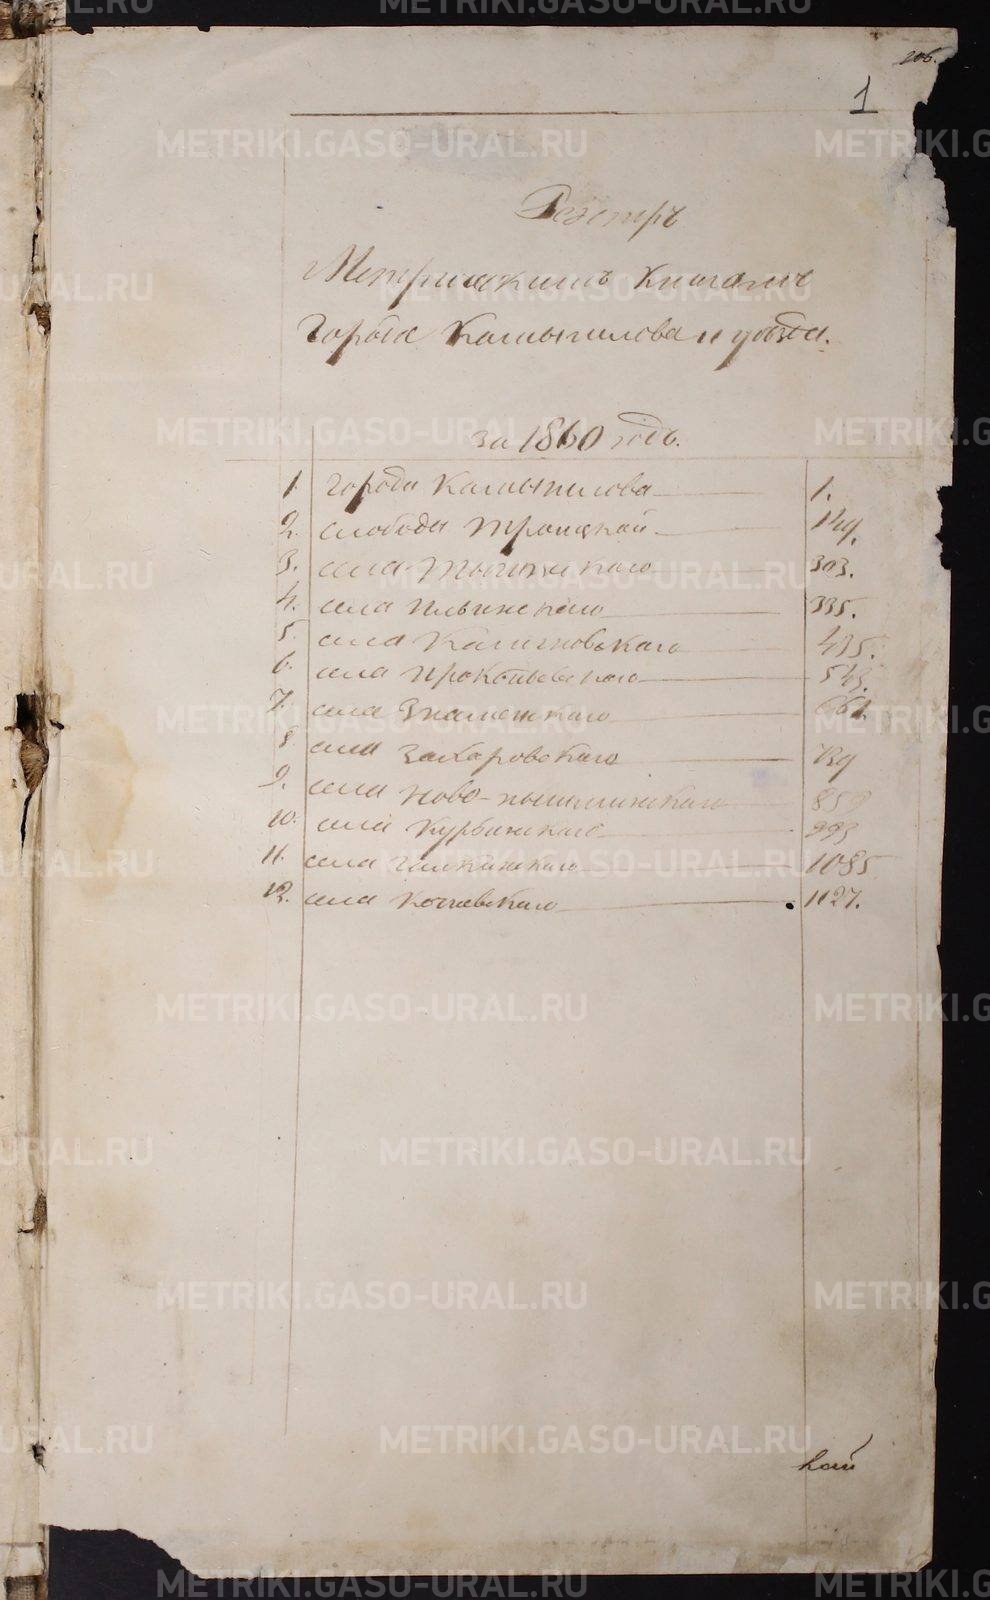 METRIKI.GASO-URAL.RU
1
Реэстръ
Метрическимъ книгамъ
Города Камышлова и уѣзда.
за 1860 годъ.
1. города Камышлова 1.
2. слободы Троицкой 149.
3. села Тыгинскаго 303.
4. села Ильинскаго 335.
5. села Калиновскаго 435.
6. села Прокопьевскаго 543.
7. села Знаменскаго 661.
8. села Захаровскаго 739
9. села Ново-пышминскаго 859
10. села Курьинскаго 993
11. села Галкинскаго 1085
12. села Кочневскаго 1127.